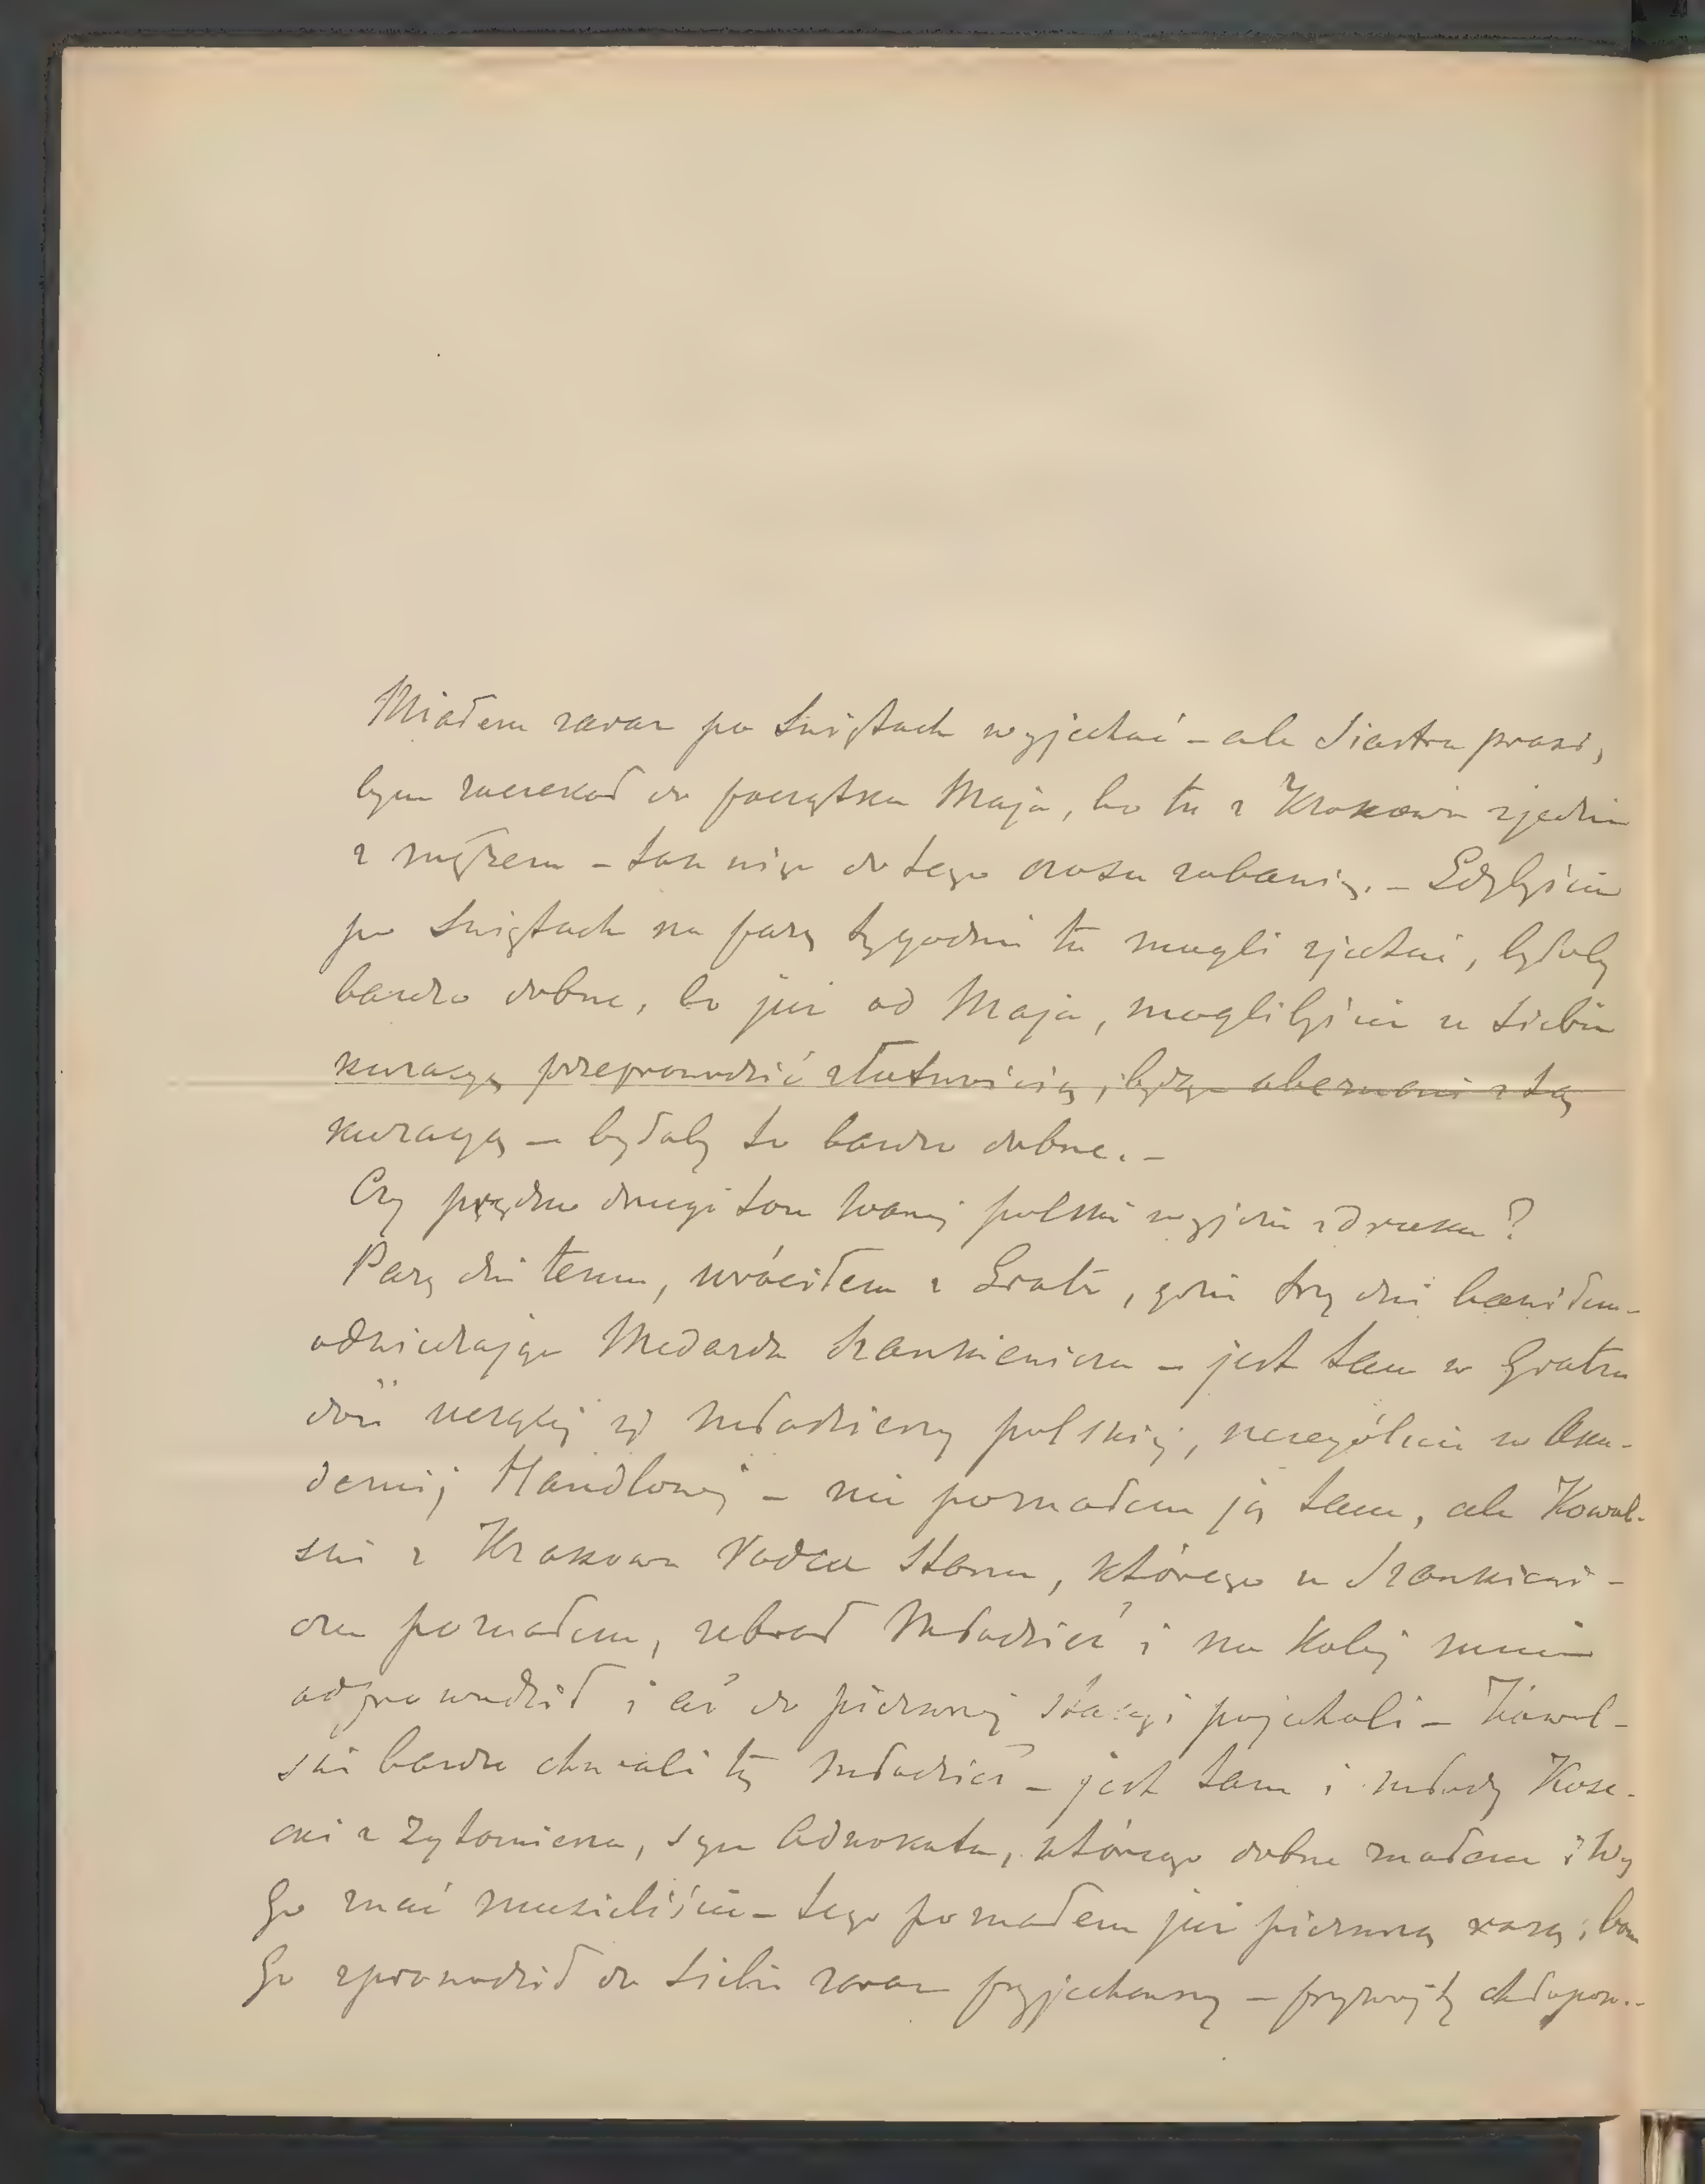 Miałem zaraz po Świętach wyjechać – ale Siostra prosi,
bym zaczekał do początku Maja, bo tu z Krakowa zjedzie
z mężem – tak więc do tego czasu zabawię. – Gdybyście
po Świętach na parę tygodni tu mogli zjechać, byłoby
bardzo dobrze, bo już od Maja, moglibyście u siebie
kuracyę przeprowadzić, będąc obeznani z tą
kuracyą – byłoby to bardzo dobrze. –
Czy prędko drugi tom Waszej polski wyjdzie z druku?
Parę dni temu, wróciłem z Gratz, gdzie trzy dni bawiłem –
odwiedzając Medarda – jest tam w Gratzu
dość młodzieży polskiej, szczególnie w Aka-
demij Handlowej – nie poznałem ją tam, ale Kowal-
ski z Krakowa Radca Stanu, którego u
poznałem, zebrał Młodzież i na Kolej mnie
odprowadził i aż do pierwszej stacyi pojechali – Kowal-
ski bardzo chwali tę Młodzież – jest tam i młody
z Żytomierza, syn Adwokata, którego dobrze znałem i Wy
Go znać musieliście – tego poznałem już pierwszą razą, bom
Go sprowadził do siebie zaraz przyjechawszy – przyzwoity chłopiec. –